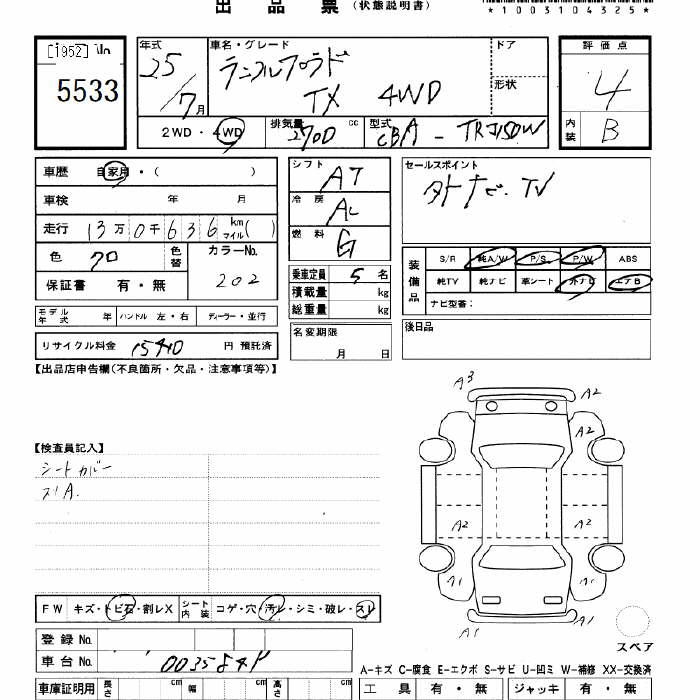 出品票 (状態説明書)
*1003104325*
[1952] No
5533
年式
25/7月
2WD・4WD
車名・グレード
ランクルプラド
TX 4WD
ドア
形状
排気量 2700 cc
型式 CBA-TRJ150W
評価点
4
内装 B
車歴 自家用・( )
車検 年 月
走行 13万0千636 km マイル( )
色 クロ 色替
カラーNo. 202
保証書 有・無
シフト AT
冷房 AC
燃料 G
乗車定員 5名
積載量 kg
総重量 kg
セールスポイント
外ナビ、TV
装備品
S/R 純A/W P/S P/W ABS
純TV 純ナビ 革シート 外ナビ エアB
ナビ型番:
モデル年式 年 ハンドル 左・右 ディーラー・並行
名変期限 月 日
後日品
リサイクル料金 15410 円 預託済
【出品店申告欄(不良箇所・欠品・注意事項等)】
A3
A2
A2
【検査員記入】
シートカバー
スリA.
A2
A2
A1
A1
A1
A1
スペア
FW キズ・トビ石・割レX
シート内装 コゲ・穴・汚レ・シミ・破レ・スレ
登録 No.
車台 No. 0035844
A-キズ C-腐食 E-エクボ S-サビ U-凹ミ W-補修 XX-交換済
車庫証明用 長さ cm 幅 cm 高さ cm
工具 有・無 ジャッキ 有・無